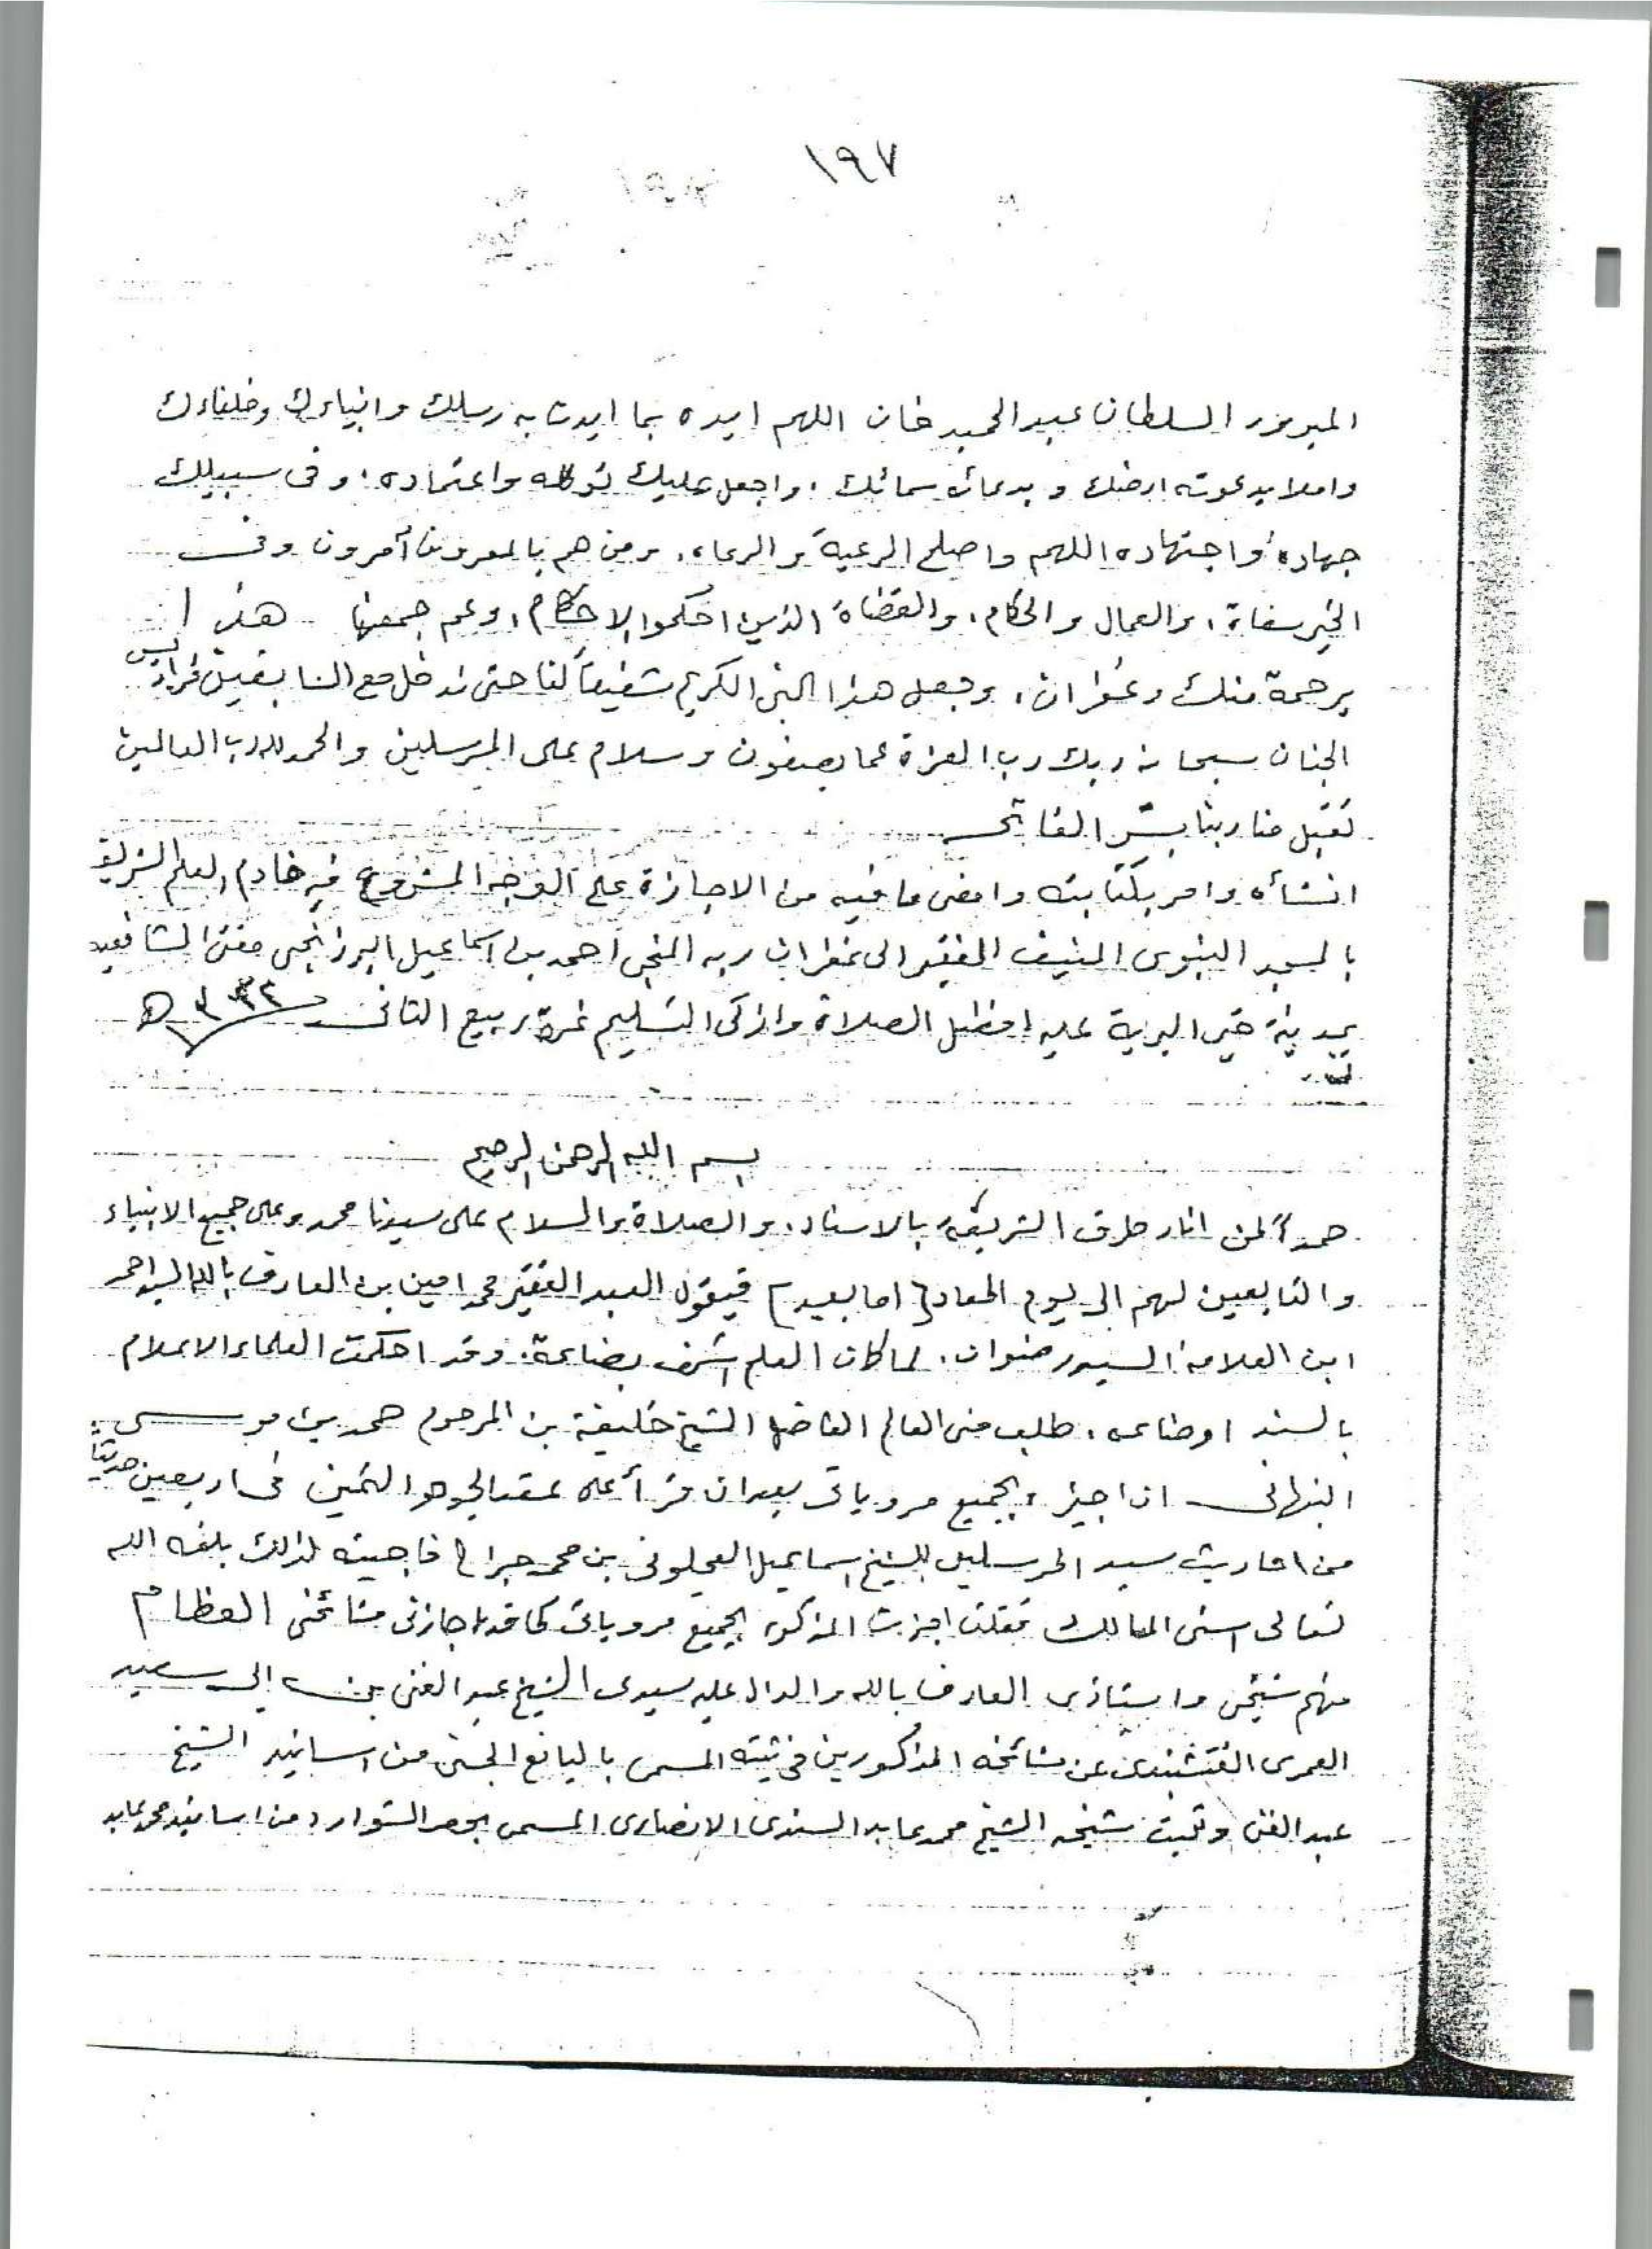 ١٩٧
المبرور السلطان عبد الحميد خان اللهم ايده بما ايدت به رسلك وانبياءك وخلفاءك
واملا بدعوته ارضك وبدعائه سمائك، واجعل عليك توكله واعتماده، وفى سبيلك
جهاده واجتهاده اللهم واصلح الرعية والرعاء، ومن هم بالمعروف آمرون وفى
الخير سعاة، والعمال والحكام، والقضاة الذين احكموا الاحكام، وعم جمعنا هذا
برحمة منك وغفران، وجعل هذا النبى الكريم شفيعاً لنا حتى ندخل مع السابقين فراديس
الجنان سبحان ربك رب العزة عما يصفون وسلام على المرسلين والحمد لله رب العالمين
تقبل منا ربنا بسر الفاتحه
انشأه وامر بكتابته وامضى ما فيه من الاجازة على الوجه المشروع فيه خادم العلم الشريف
بالمسجد النبوى المنيف الفقير الى غفران ربه المنجى احمد بن اسماعيل البرزنجى مفتى الشافعيه
بمدينة خير البرية عليه افضل الصلاة وازكى التسليم غرة ربيع الثانى ١٣٣٢ هـ
بسم الله الرحمن الرحيم
حمداً لمن انار طرق الشريعة بالاسناد، والصلاة والسلام على سيدنا محمد وعلى جميع الانبياء
والتابعين لهم الى يوم المعاد (اما بعد) فيقول العبد الفقير محمد امين بن العارف بالله السيد احمد
ابن العلامة السيد رضوان، لما كان العلم اشرف بضاعة، وقد احكمت العلماء الاعلام
بالسند اوضاعه، طلب منى العالم الفاضل الشيخ خليفة بن المرحوم حمد بن موسى
النبهانى ان اجيزه بجميع مروياتى بعد ان قرأ على عقد الجوهر الثمين فى اربعين حديثاً
من احاديث سيد المرسلين للشيخ اسماعيل العجلونى بن محمد جراح فاجبته لذلك بلغه الله
تعالى اسنى المسالك فقلت اجزت المذكور بجميع مروياتى كما قد اجازنى مشائخى العظام
منهم شيخى واستاذى العارف بالله والدال عليه سيدى الشيخ عبد الغنى بن ابى سعيد
العمرى النقشبندى عن مشائخه المذكورين فى ثبته المسمى باليانع الجنى من اسانيد الشيخ
عبد الغنى وثبت شيخه الشيخ محمد عابد السندى الانصارى المسمى بحصر الشوارد من اسانيد محمد عابد